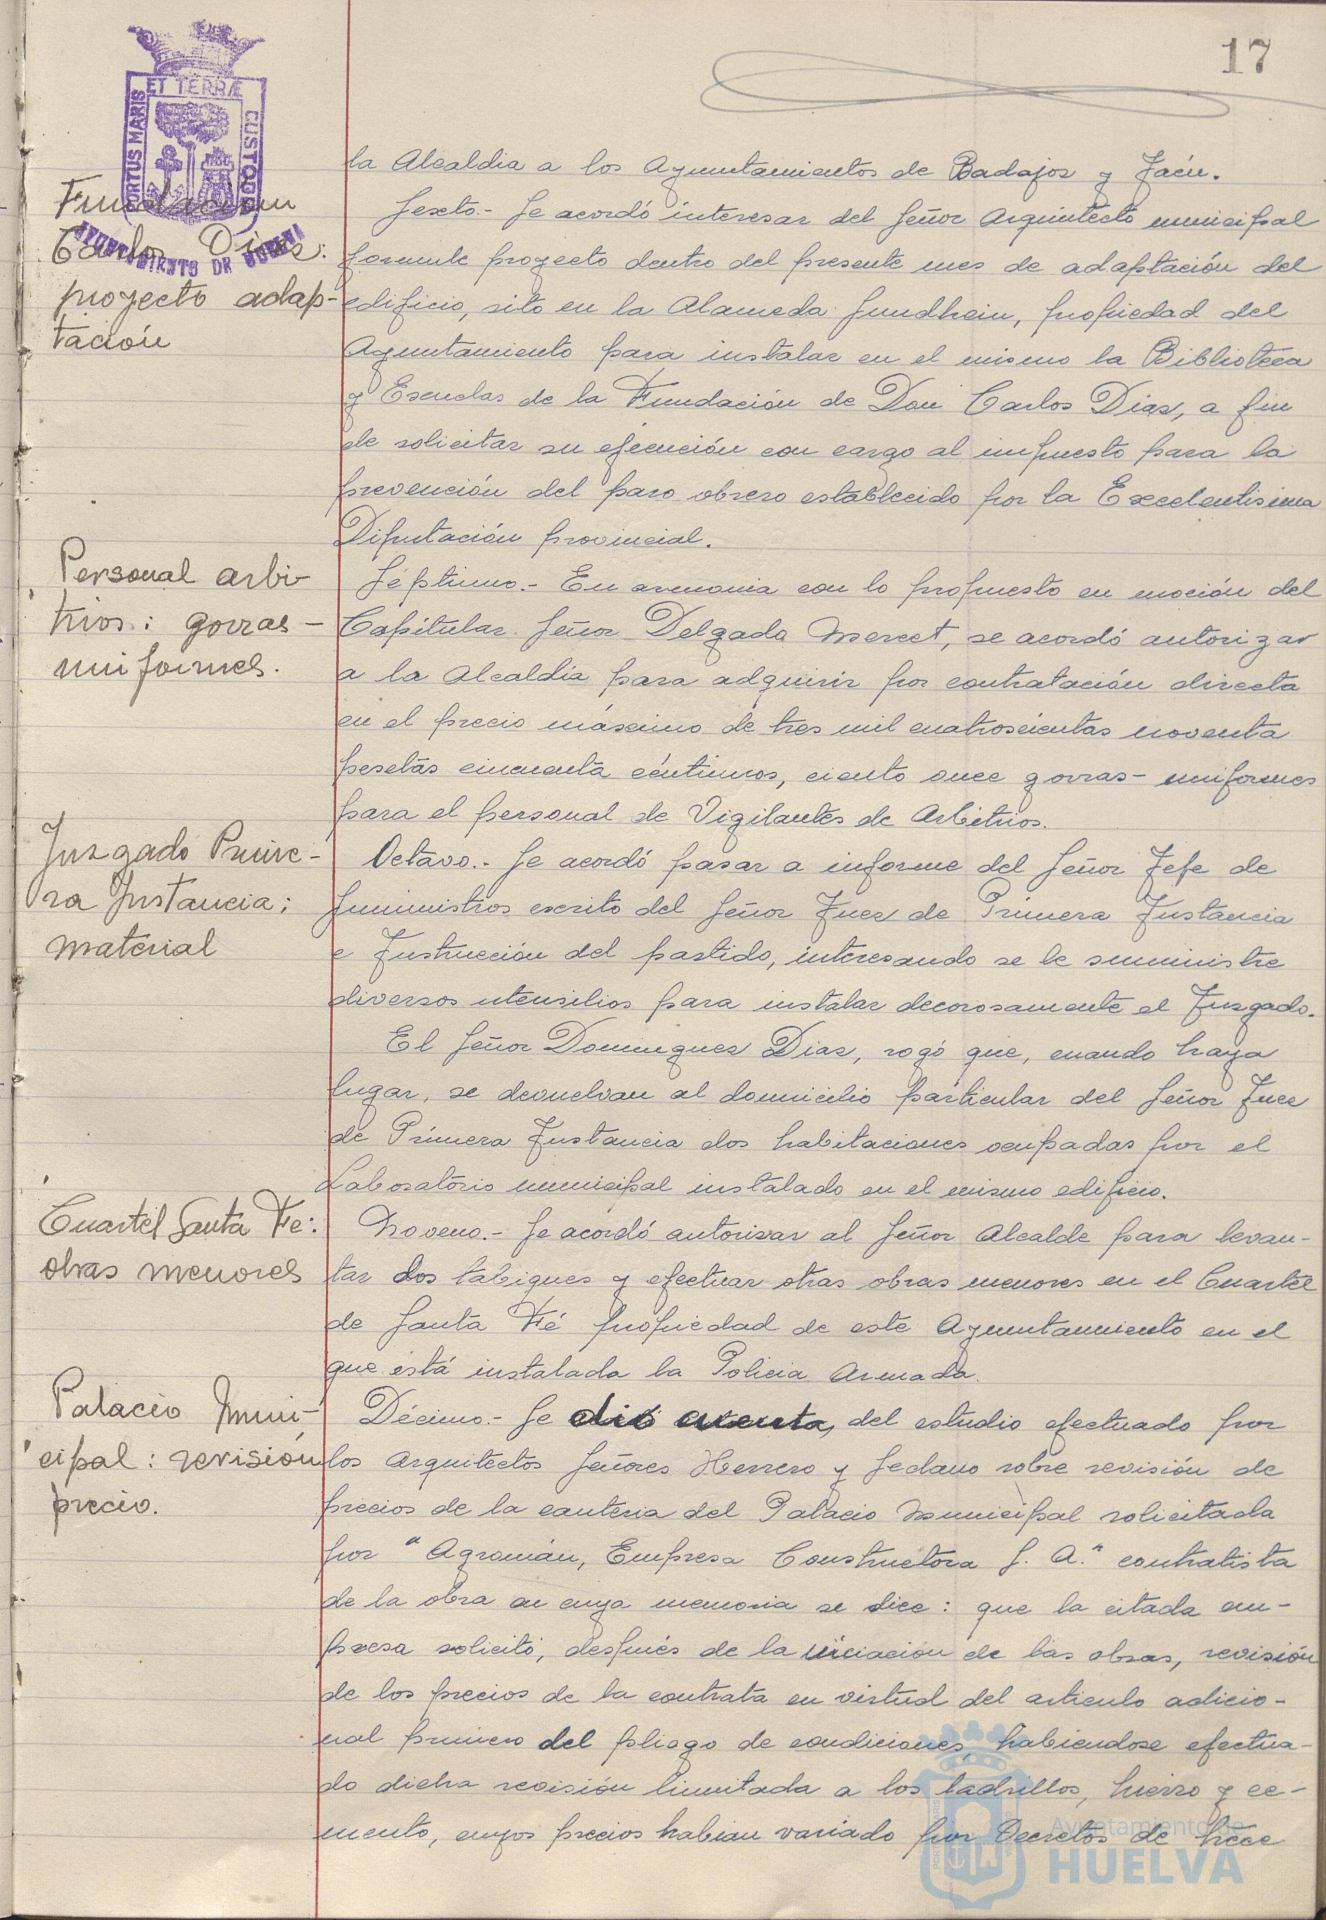 17
PORTUS MARIS ET TERRÆ CUSTODIA
AYUNTAMIENTO DE HUELVA
la Alcaldia a los Ayuntamientos de Badajoz y Jaén.
Fundación
Carlos Diaz:
proyecto adap-
tación
Sexto.- Se acordó interesar del Señor Arquitecto municipal
formule proyecto dentro del presente mes de adaptación del
edificio, sito en la Alameda Sundhein, propiedad del
Ayuntamiento para instalar en el mismo la Biblioteca
y Escuelas de la Fundación de Don Carlos Diaz, a fin
de solicitar su ejecución con cargo al impuesto para la
prevención del paro obrero establecido por la Excelentisima
Diputación provincial.
Personal arbi-
trios: gorras-
uniformes.
Séptimo.- En armonia con lo propuesto en moción del
Capitular Señor Delgado Mercet, se acordó autorizar
a la Alcaldia para adquirir por contratación directa
en el precio máximo de tres mil cuatrocientas noventa
pesetas cincuenta céntimos, ciento once gorras-uniformes
para el personal de Vigilantes de Arbitrios.
Juzgado Prime-
ra Instancia;
material
Octavo.- Se acordó pasar a informe del Señor Jefe de
Suministros escrito del Señor Juez de Primera Instancia
e Instrucción del partido, interesando se le suministre
diversos utensilios para instalar decorosamente el Juzgado.
El Señor Dominguez Diaz, rogó que, cuando haya
lugar, se devuelvan al domicilio particular del Señor Juez
de Primera Instancia dos habitaciones ocupadas por el
Laboratorio municipal instalado en el mismo edificio.
Cuartel Santa Fe:
obras menores
Noveno.- Se acordó autorizar al Señor Alcalde para levan-
tar dos tabiques y efectuar otras obras menores en el Cuartel
de Santa Fé propiedad de este Ayuntamiento en el
que está instalada la Policia Armada.
Palacio Muni-
cipal: revisión
precio.
Décimo.- Se dió cuenta, del estudio efectuado por
los Arquitectos Señores Herrero y Sedano sobre revisión de
precios de la canteria del Palacio Municipal solicitada
por "Agromán, Empresa Constructora S. A." contratista
de la obra en cuya memoria se dice: que la citada em-
presa solicitó, después de la iniciación de las obras, revisión
de los precios de la contrata en virtud del articulo adicio-
nal primero del pliego de condiciones, habiendose efectua-
do dicha revisión limitada a los ladrillos, hierro y ce-
mento, cuyos precios habian variado por Decretos de trece
Ayuntamiento de
HUELVA